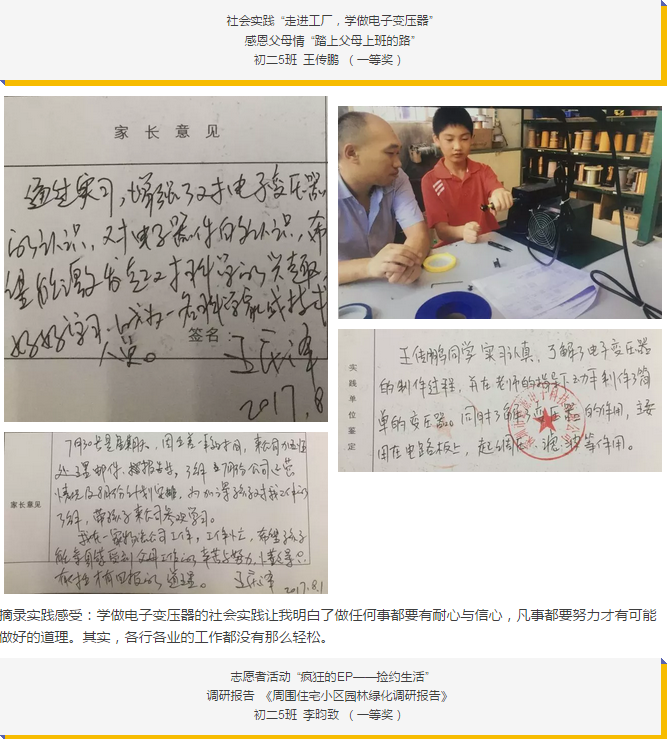 社会实践 “走进工厂，学做电子变压器”
感恩父母情 “踏上父母上班的路”
初二5班 王传鹏 （一等奖）
家长意见
通过实习，增强了对电子变压器
的认识，对电子器件的认识，希
望能激发起对科学的兴趣，
好好学习，成为一名科学家或技术
人员。
签名
2017.8
实践单位鉴定
王传鹏同学实习认真，了解了电子变压器
的制作过程，并在老师的指导下动手制作了简
单的变压器。同时了解了变压器的作用，主要
用在电路板上，起到滤波等作用。
家长意见
7月30号是星期天，
处理邮件，
我在一家科技公司工作，工作忙，希望孩子
能亲身感受到父母工作的辛苦与努力，懂得只
有付出才有回报的道理。
2017.8.1
摘录实践感受：学做电子变压器的社会实践让我明白了做任何事都要有耐心与信心，凡事都要努力才有可能
做好的道理。其实，各行各业的工作都没有那么轻松。
志愿者活动 “疯狂的EP——捡约生活”
调研报告 《周围住宅小区园林绿化调研报告》
初二5班 李昀致 （一等奖）